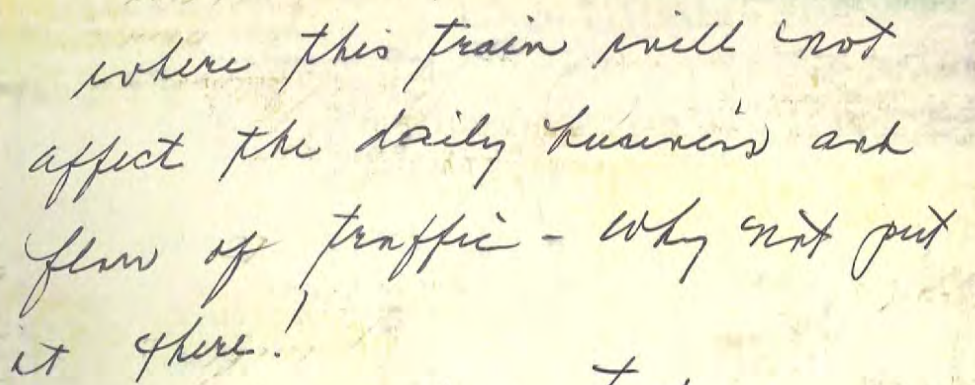 where this train will not
affect the daily business and
flow of traffic - why not put
it there!